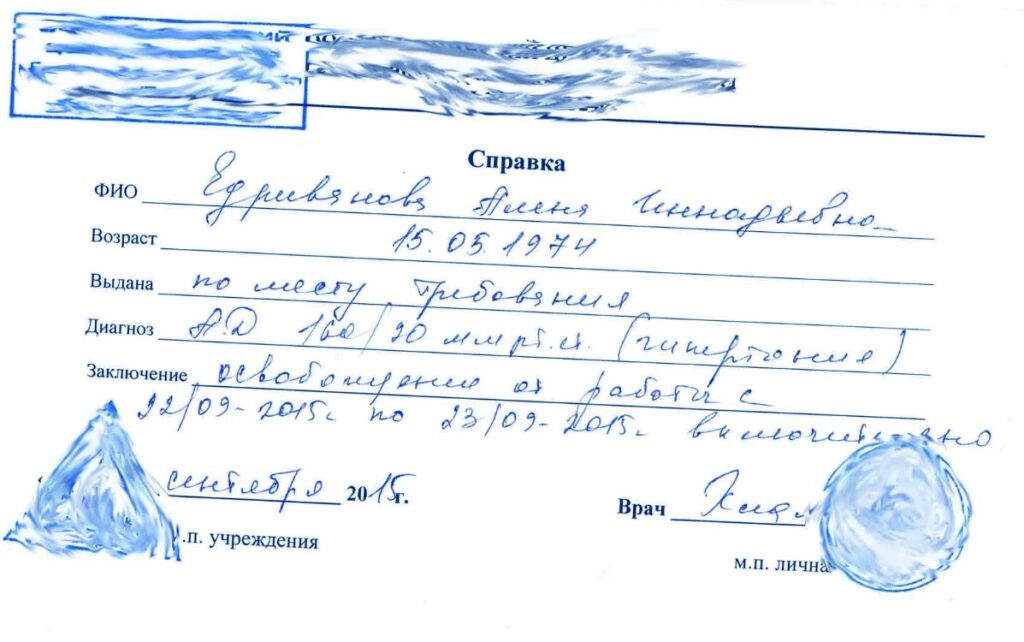 Справка
ФИО Едриванова Алена Иннадьевна
Возраст 15.05.1974
Выдана по месту требования
Диагноз А.Д 160/90 мм рт.ст. (гипертония)
Заключение освобождение от работы с
22/09-2015г по 23/09-2015г включительно
сентября 2015г. Врач
.п. учреждения м.п. лична